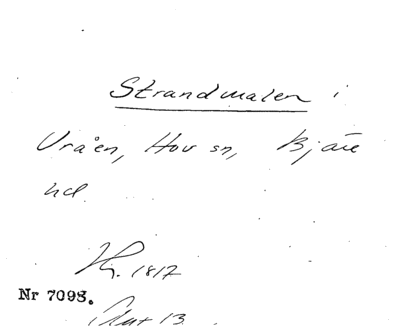 Strandmalen i
Vråen, Hov sn, Bjäre
hd.
1817
Nr 7098.
13